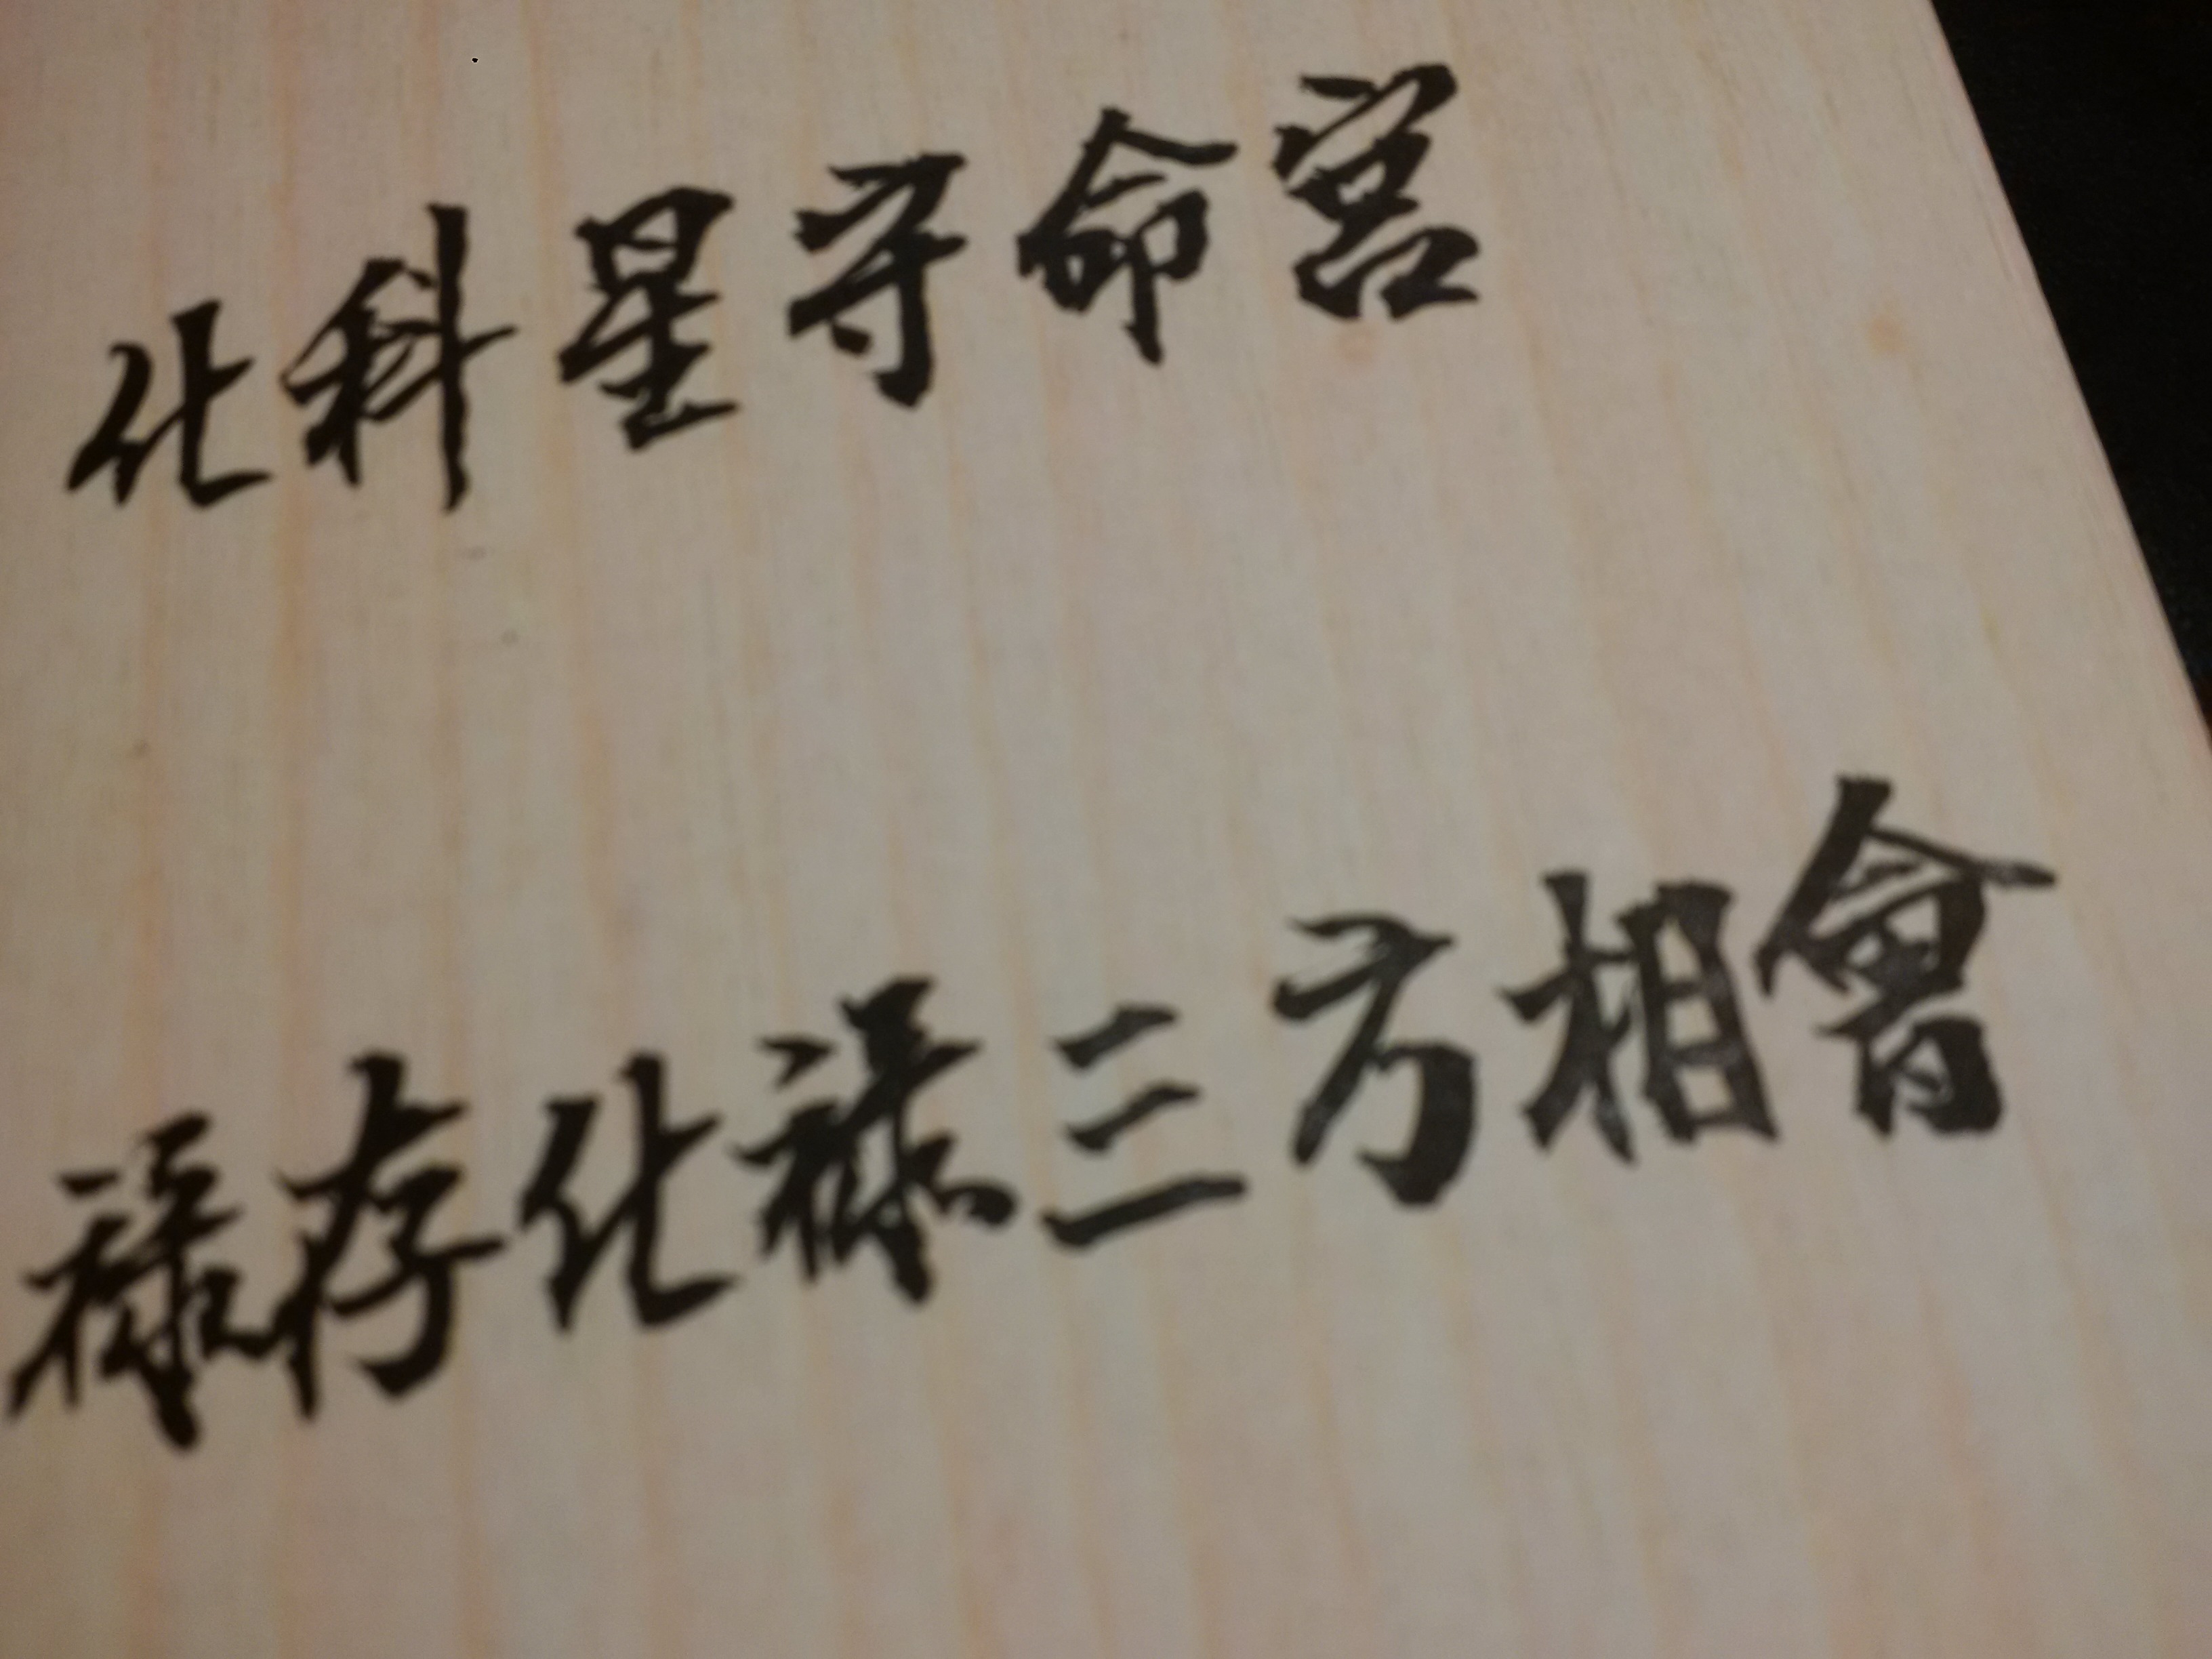 化科星守命宮
祿存化祿三方相會